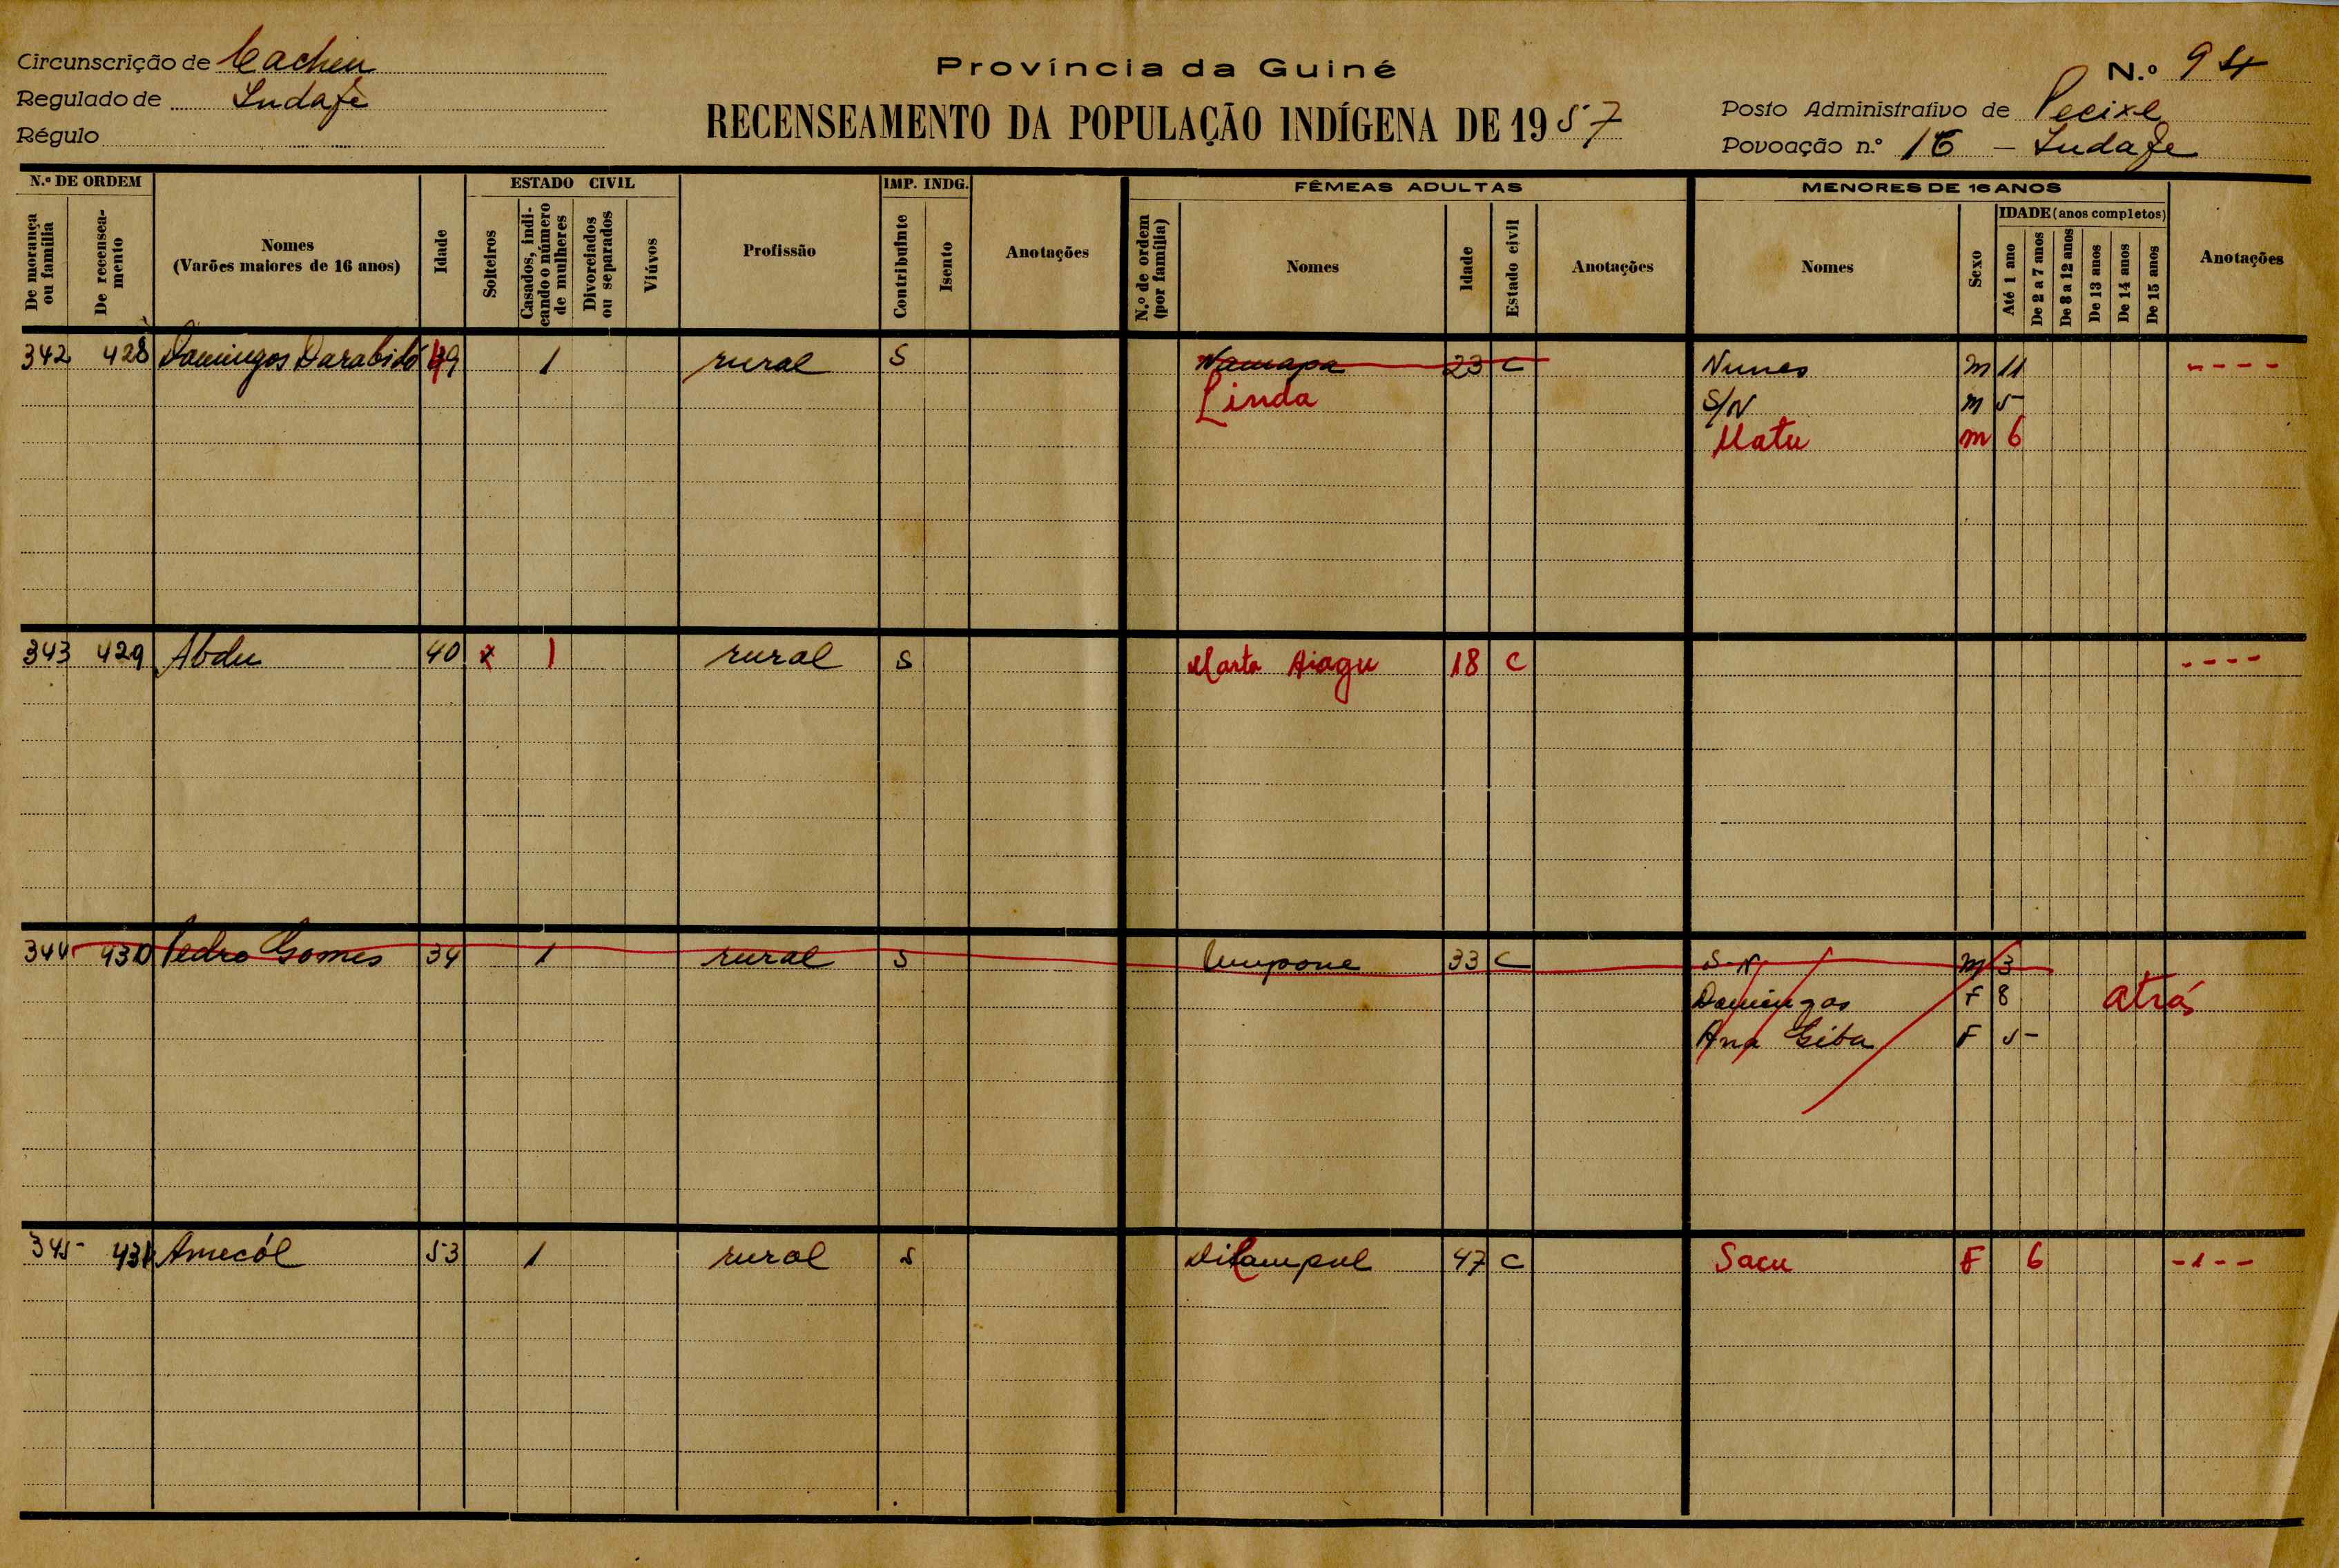 Circunscrição de Cacheu
Regulado de Indafe
Régulo
Província da Guiné
RECENSEAMENTO DA POPULAÇÃO INDÍGENA DE 1957
N.º 94
Posto Administrativo de Pecixe
Povoação n.º 16 - Indafe
N.º DE ORDEM
De morança ou família
De recenseamento
Nomes
(Varões maiores de 16 anos)
Idade
ESTADO CIVIL
Solteiros
Casados, indicando o número de mulheres
Divorciados ou separados
Viúvos
Profissão
IMP. INDG.
Contribuinte
Isento
Anotações
FÊMEAS ADULTAS
N.º de ordem (por família)
Nomes
Idade
Estado civil
Anotações
MENORES DE 16 ANOS
Nomes
Sexo
IDADE (anos completos)
Até 1 ano
De 2 a 7 anos
De 8 a 12 anos
De 13 anos
De 14 anos
De 15 anos
Anotações
342 428 Domingos Darabidó 49 1 rural S Namapa 23 C Nunes m 11 ----
Linda S/N m 5
Matu m 6
343 429 Abdu 40 x 1 rural S Marta Aiagu 18 C ----
344 430 Pedro Gomes 34 1 rural S Umpone 33 C S-N m 3
Domingas F 8 atrás
Ana Giba F 5
345 431 Amecól 53 1 rural S 47 C Sacu F 6 -1--